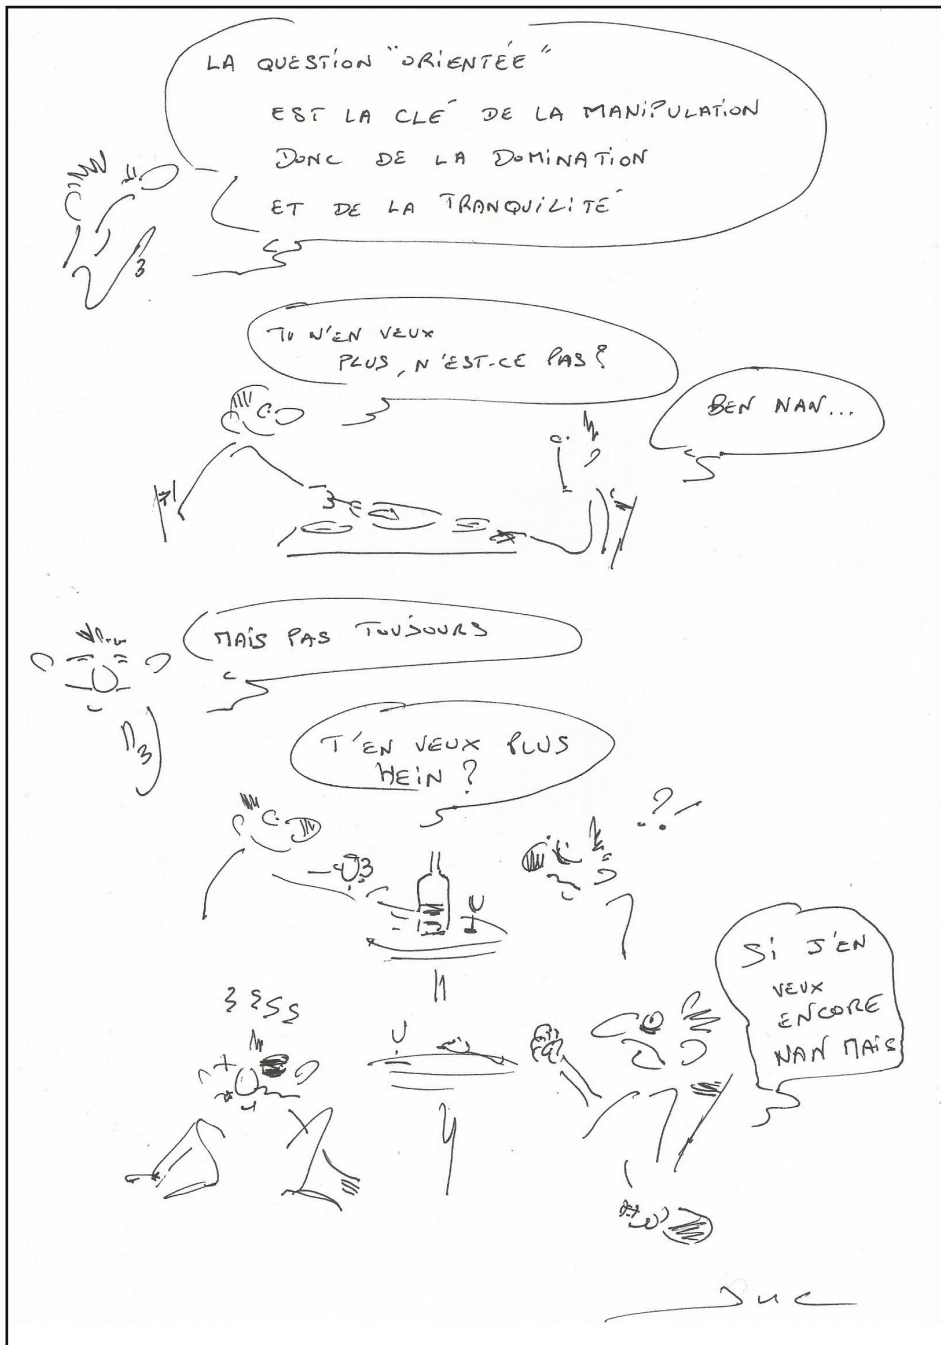 LA QUESTION "ORIENTÉE"
EST LA CLÉ DE LA MANIPULATION
DONC DE LA DOMINATION
ET DE LA TRANQUILITÉ
TU N'EN VEUX
PLUS, N'EST-CE PAS?
BEN NAN...
MAIS PAS TOUJOURS
T'EN VEUX PLUS
HEIN ?
?
SI J'EN
VEUX
ENCORE
NAN MAIS
DUC